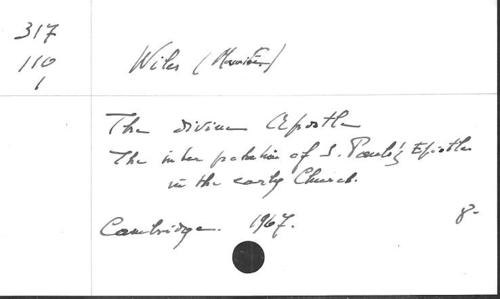 317
110
1
Wiles (Maurice)
The divine Apostle
The interpretation of S. Paul's Epistles
in the early Church.
Cambridge. 1967.
8-